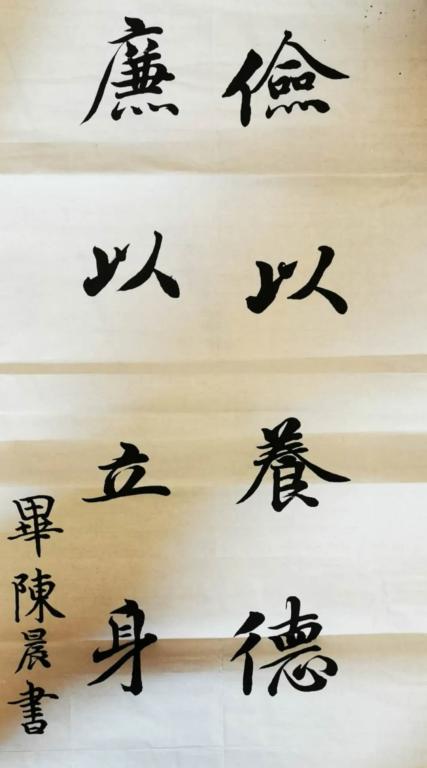 儉以養德
廉以立身
畢陳晨書